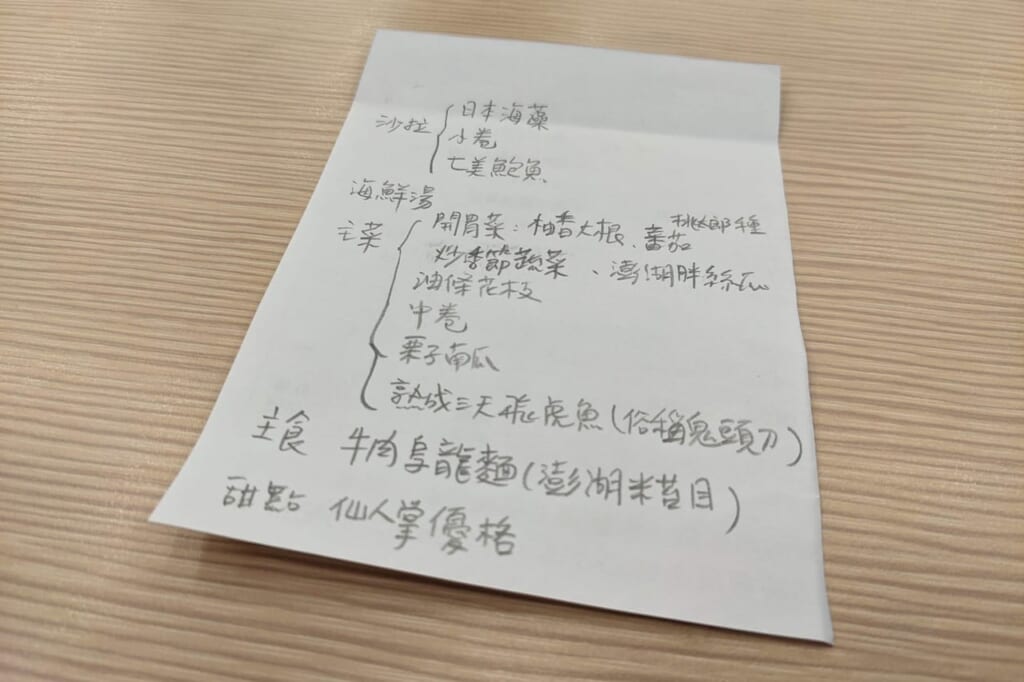 沙拉 日本海藻
小卷
七美鮑魚
海鮮湯
主菜 開胃菜：柚香大根、番茄 桃太郎種
炒季節蔬菜、澎湖胖絲瓜
油條花枝
中卷
栗子南瓜
熟成三天飛虎魚(俗稱鬼頭刀)
主食 牛肉烏龍麵(澎湖米苔目)
甜點 仙人掌優格